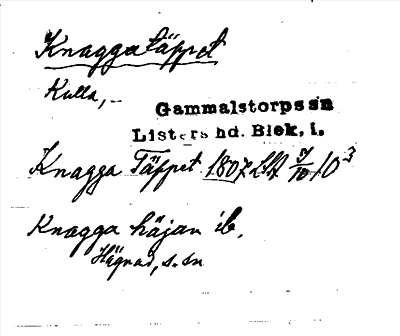 Knaggatäppet
Kulla,
Gammalstorps sn
Listers hd. Blek. l.
Knagga Täppet 1807 LSA 7/10 10³
Knagga häjan ib.
Hägnad, s. sn